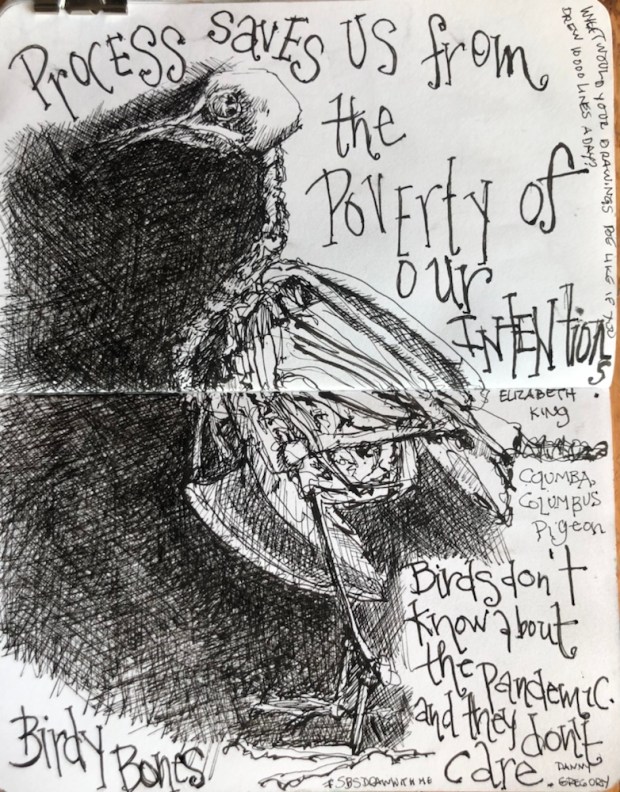 PrOCESS SAVES US from
the
POVErty of
our
INTENtionS.
ELIZABETH
KING
COLUMBA,
COLUMBUS
Pigeon
WHAT WOULD YOUR DRAWINGS BE LIKE IF YOU
DREW 10000 LINES A DAY?
Birds don't
know about
the Pandemic.
and they don't
Care.
DANNY
GREGORY
Birdy Bones
#SBSDRAWWITHME